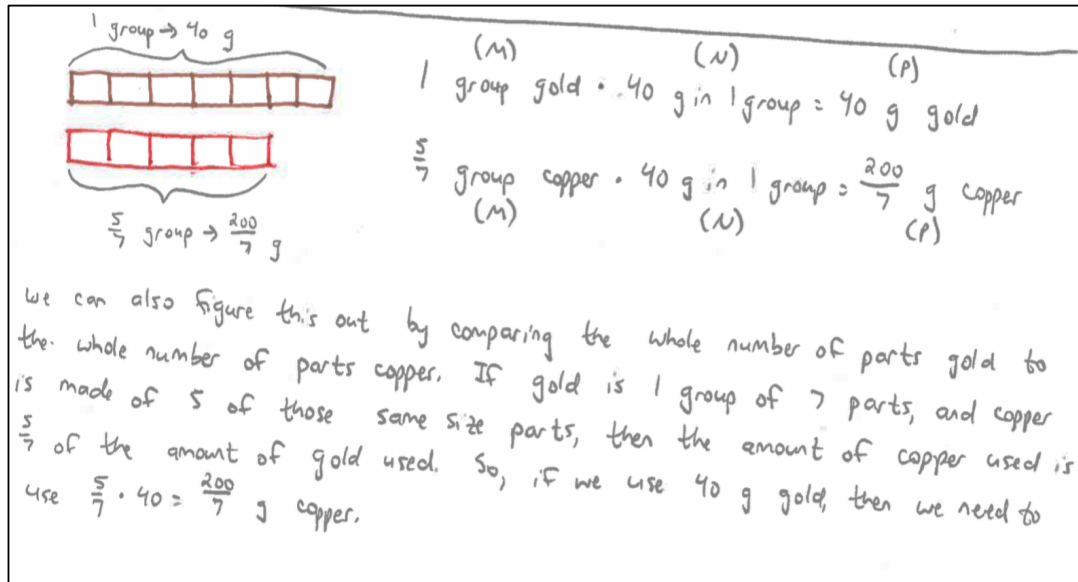 1 group → 40 g
5/7 group → 200/7 g
(M) (N) (P)
1 group gold · 40 g in 1 group = 40 g gold
5/7 group copper · 40 g in 1 group = 200/7 g copper
(M) (N) (P)
we can also figure this out by comparing the whole number of parts gold to
the whole number of parts copper. If gold is 1 group of 7 parts, and copper
is made of 5 of those same size parts, then the amount of copper used is
5/7 of the amount of gold used. So, if we use 40 g gold, then we need to
use 5/7 · 40 = 200/7 g copper.